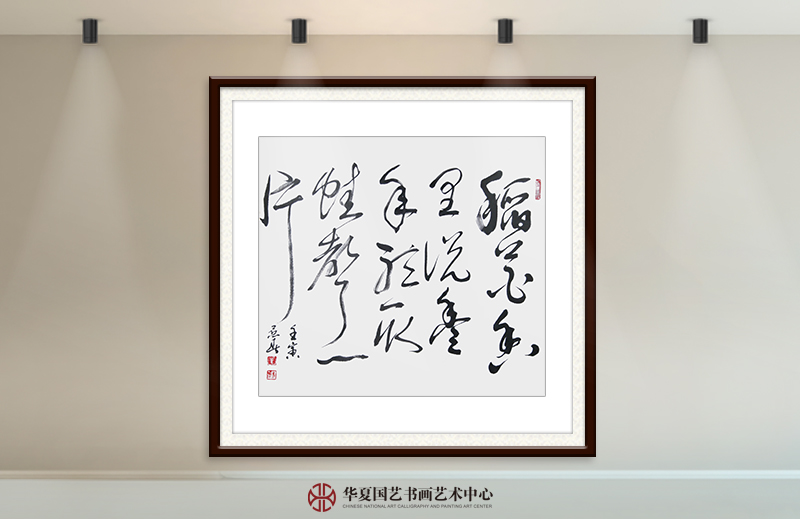 稻花香
里說豐
年聽取
蛙聲一
片
壬寅
华夏国艺书画艺术中心
CHINESE NATIONAL ART CALLIGRAPHY AND PAINTING ART CENTER